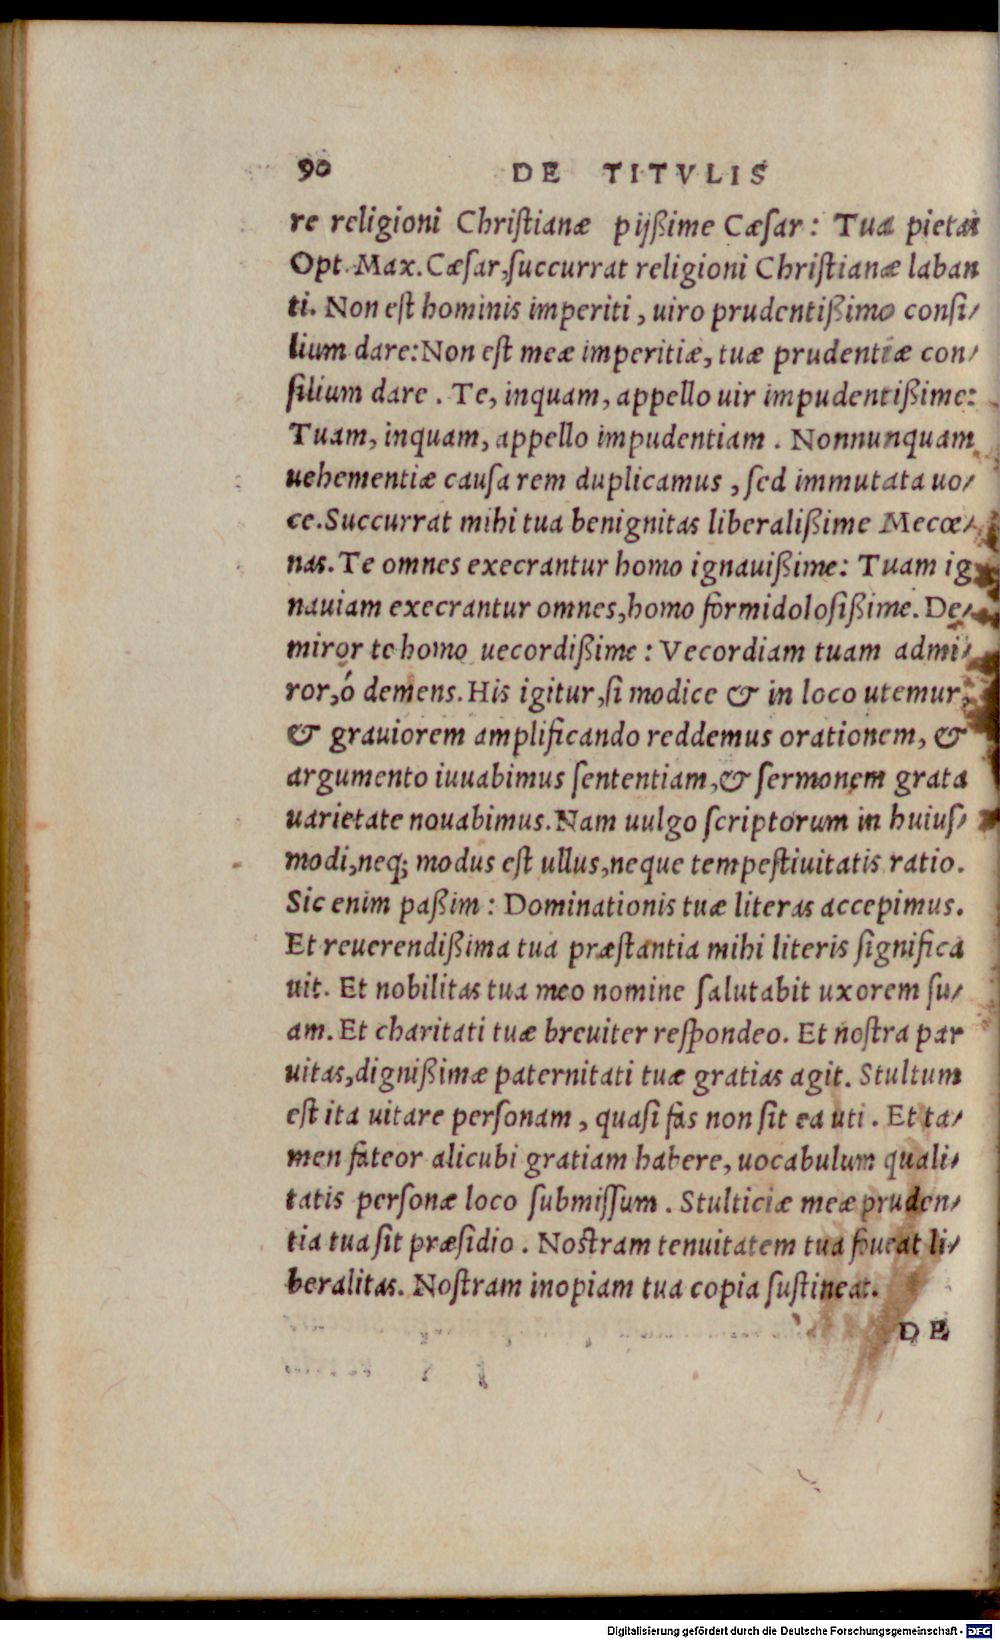 90 DE TITVLIS
re religioni Chriſtianæ pijßime Cæſar: Tua pietas
Opt. Max. Cæſar, ſuccurrat religioni Chriſtianæ laban
ti. Non eſt hominis imperiti, uiro prudentißimo conſi/
lium dare: Non eſt meæ imperitiæ, tuæ prudentiæ con/
ſilium dare. Te, inquam, appello uir impudentißime:
Tuam, inquam, appello impudentiam. Nonnunquam
uehementiæ cauſa rem duplicamus, ſed immutata uo/
ce. Succurrat mihi tua benignitas liberalißime Mecœ/
nas. Te omnes execrantur homo ignauißime: Tuam ig
nauiam execrantur omnes, homo formidoloſißime. De/
miror te homo uecordißime: Vecordiam tuam admi/
ror, ó demens. His igitur, ſi modice & in loco utemur,
& grauiorem amplificando reddemus orationem, &
argumento iuuabimus ſententiam, & ſermonem grata
uarietate nouabimus. Nam uulgo ſcriptorum in huiuſ/
modi, neq; modus eſt ullus, neque tempeſtiuitatis ratio.
Sic enim paßim: Dominationis tuæ literas accepimus.
Et reuerendißima tua præſtantia mihi literis ſignifica
uit. Et nobilitas tua meo nomine ſalutabit uxorem ſu/
am. Et charitati tuæ breuiter reſpondeo. Et noſtra par
uitas, dignißimæ paternitati tuæ gratias agit. Stultum
eſt ita uitare perſonam, quaſi fas non ſit ea uti. Et ta/
men fateor alicubi gratiam habere, uocabulum quali/
tatis perſonæ loco ſubmiſſum. Stulticiæ meæ pruden/
tia tua ſit præſidio. Noſtram tenuitatem tua foueat li/
beralitas. Noſtram inopiam tua copia ſuſtineat.
DE
Digitalisierung gefördert durch die Deutsche Forschungsgemeinschaft - DFG